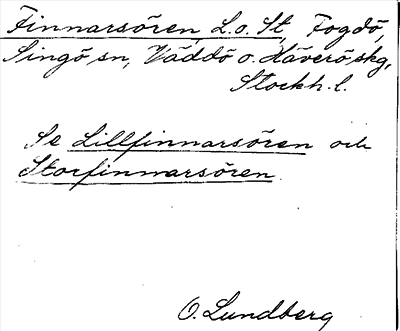 Finnarsören, L. o. St, Fogdö,
Singö sn, Väddö o. Häverö skg,
Stockh. l.
Se Lillfinnarsören och
Storfinnarsören.
O. Lundberg